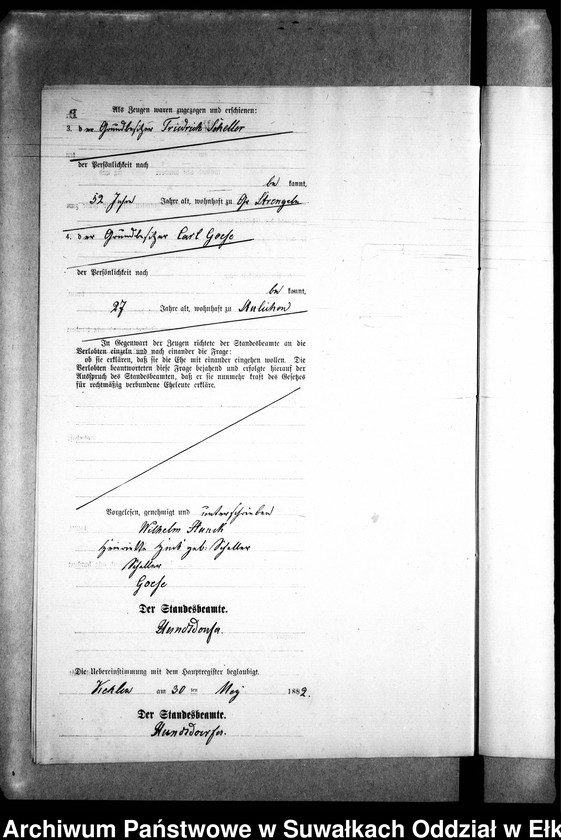 Als Zeugen waren zugezogen und erschienen:
3. der Grundbesitzer Friedrich Scheller
der Persönlichkeit nach
be kannt,
52 Jahre Jahre alt, wohnhaft zu Gr. Strengeln
4. der Grundbesitzer Carl Goese
der Persönlichkeit nach
be kannt,
27 Jahre alt, wohnhaft zu
In Gegenwart der Zeugen richtete der Standesbeamte an die
Verlobten einzeln und nach einander die Frage:
ob sie erklären, daß sie die Ehe mit einander eingehen wollen. Die
Verlobten beantworteten diese Frage bejahend und erfolgte hierauf der
Ausspruch des Standesbeamten, daß er sie nunmehr kraft des Gesetzes
für rechtmäßig verbundene Eheleute erkläre.
Vorgelesen, genehmigt und unterschrieben
Wilhelm
Henriette geb: Scheller
Scheller
Goese
Der Standesbeamte.
Hundsdorfer.
Die Uebereinstimmung mit dem Hauptregister beglaubigt.
am 30 ten May 1882.
Der Standesbeamte.
Hundsdoerfer.
Archiwum Państwowe w Suwałkach Oddział w Ełk